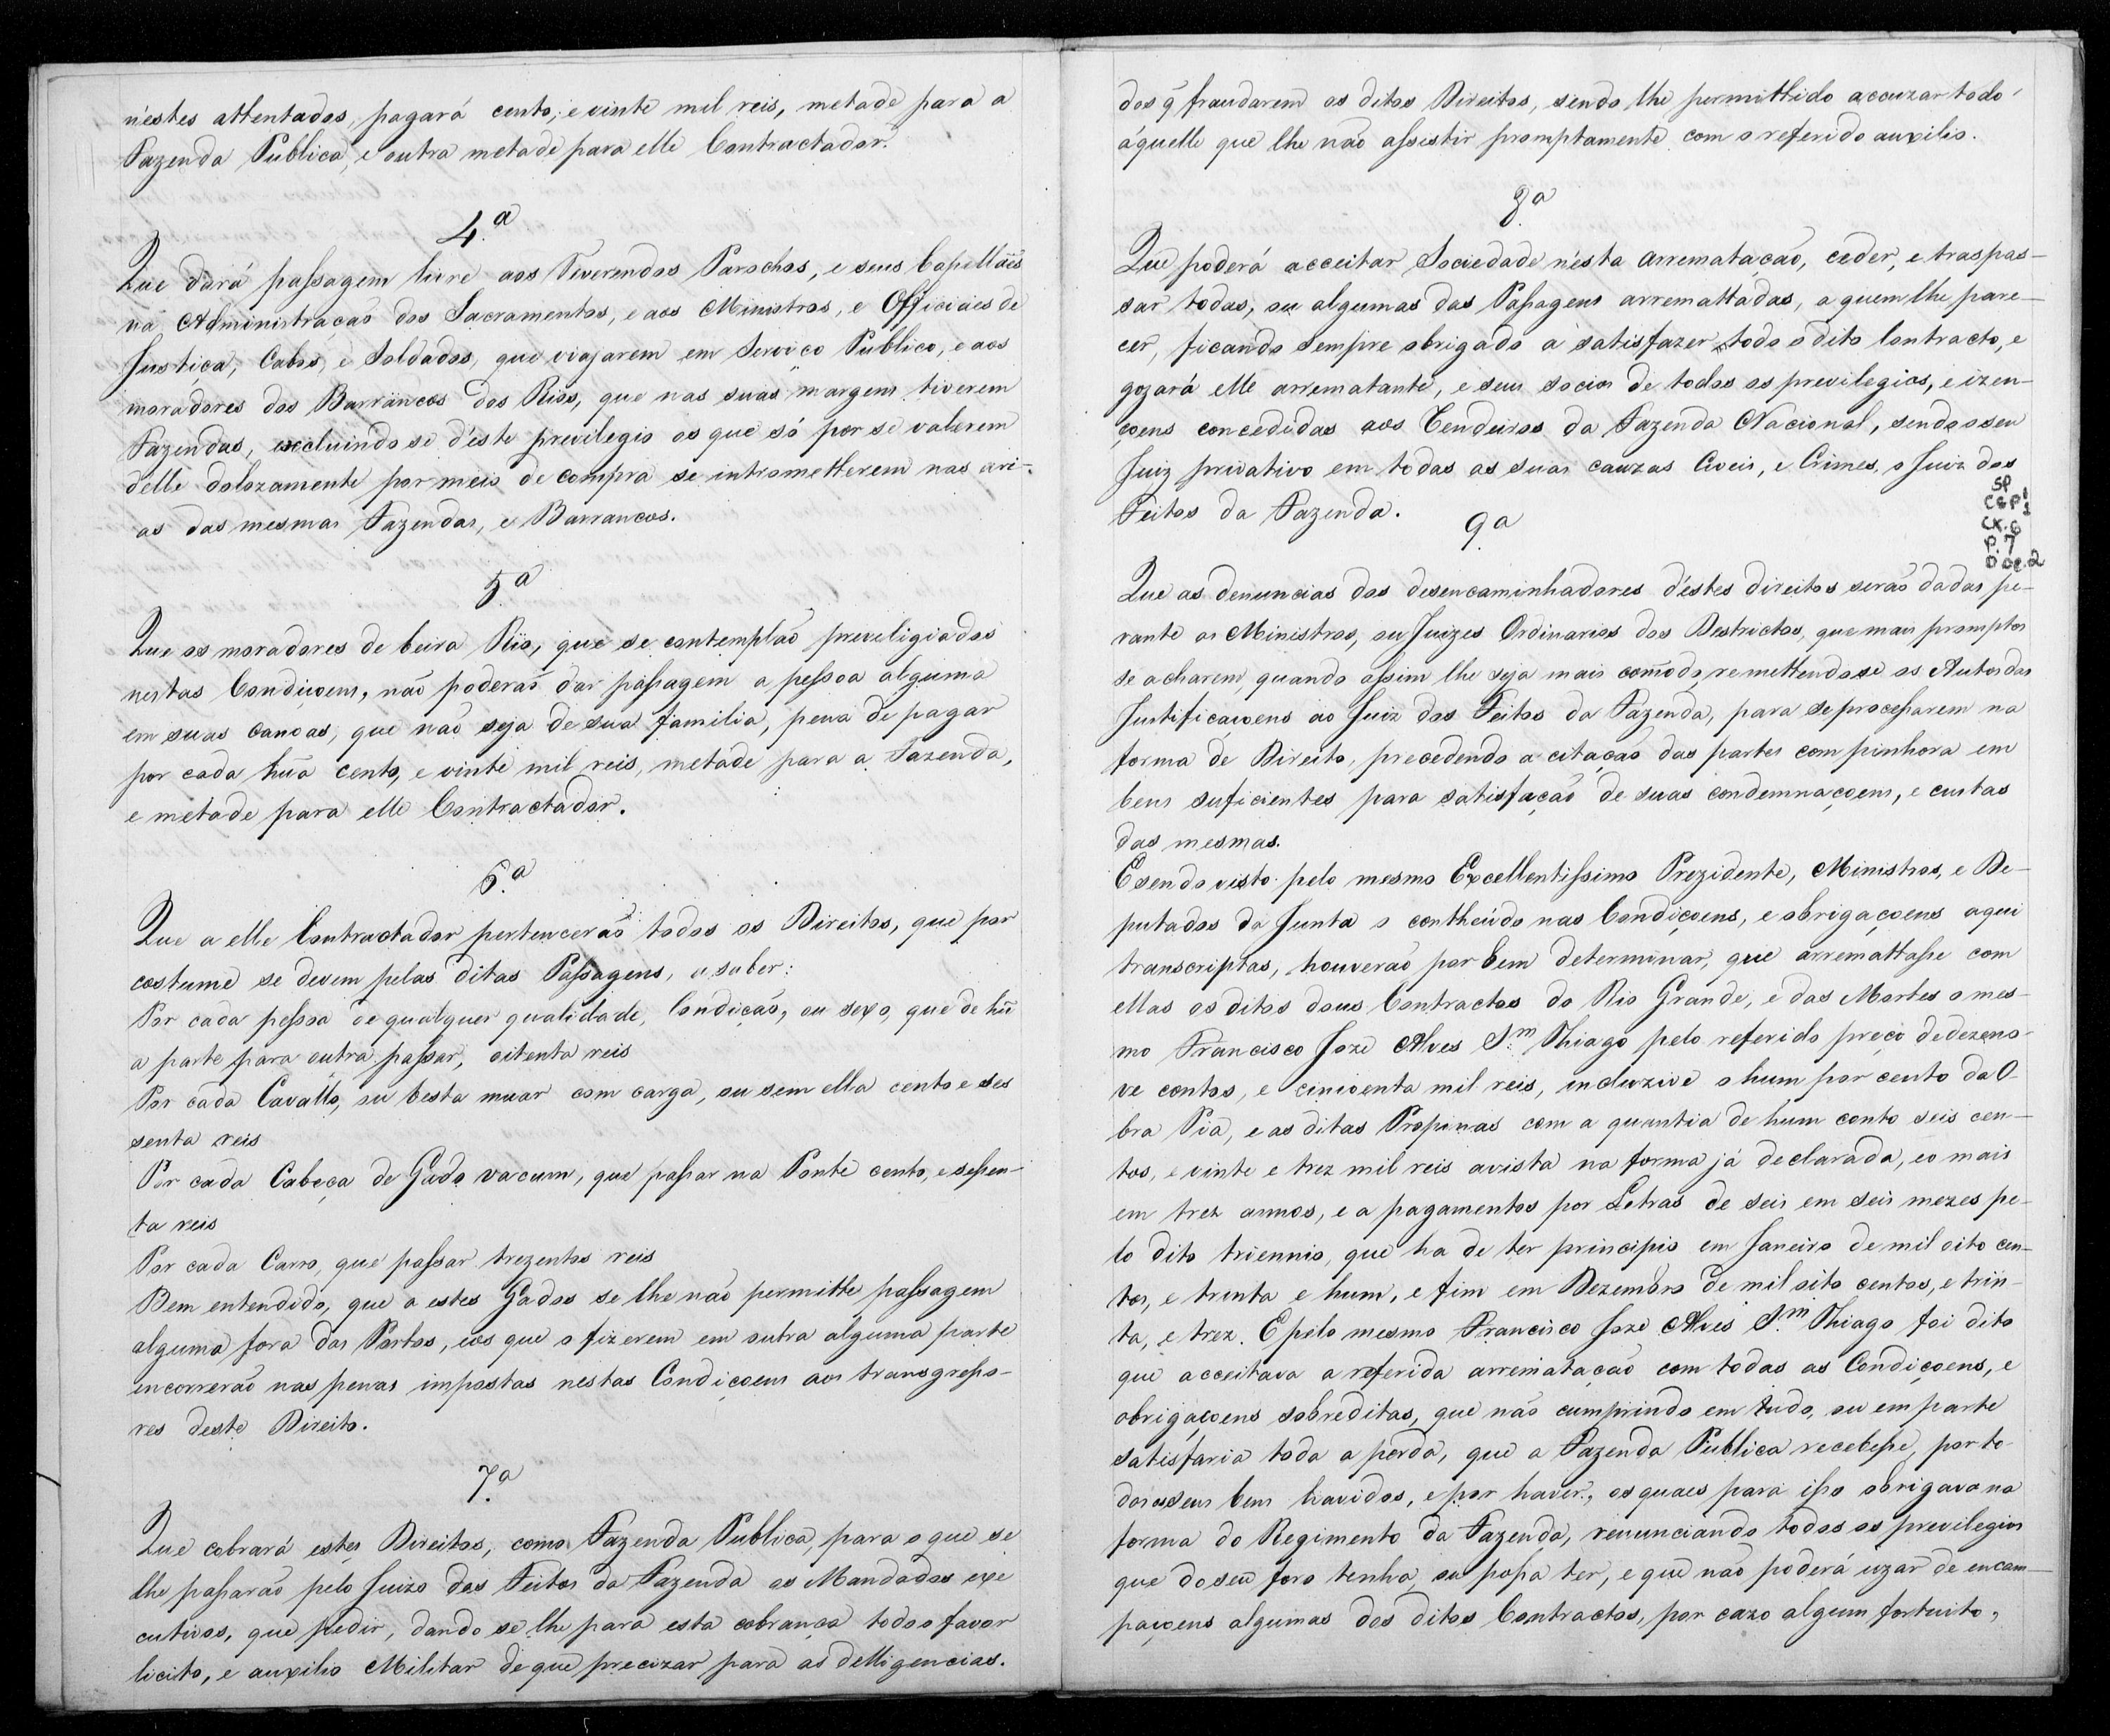 n'estes attentados, pagará cento, e vinte mil reis, metade para a
Fazenda Publica, e outra metade para elle Contractador.
4.a
Que dará passagem livre aos Reverendos Parochos, e seus Capellaẽs
na Administracaõ dos Sacramentos, e aos Ministros, e Officiáes de
Justiça, Cabos, e Soldados, que viajarem em Servico Publico, e aos
moradores dos Barrancos dos Rios, que nas suas margens tiverem
Fazendas, excluindo se d'este previlegio os que só por se valerem
delle dolozamente por meio de compra se intrometterem nas ari-
as das mesmas Fazendas, e Barrancos.
5.a
Que os moradores de beira Rio, que se contemplaõ previligiados
nestas Condiçoens, naõ poderaõ dar passagem a pessoa alguma
em suas canoas, que naõ seja de sua familia, pena de pagar
por cada huã cento, e vinte mil reis, metade para a Fazenda,
e metade para elle Contractador.
6.a
Que a elle Contractador pertenceraõ todos os Direitos, que por
costume se devem pelas ditas Passagens, a saber:
Por cada pessoa de qualquer qualidade, Condicaõ, ou sexo, que de hũ
a parte para outra passar, oitenta reis
Por cada Cavallo, ou besta muar com carga, ou sem ella cento e ses
senta reis
Por cada Cabeça de Gado vacum, que passar na Ponte cento, e sessen-
ta reis
Por cada Carro, que passar trezentos reis
Bem entendido, que a estes Gados se lhe naõ permitte passagem
alguma fora dos Portos, e os que o fizerem em outra alguma parte
encorreraõ nas penas impostas nestas Condiçoens aos transgresso-
res deste Direito.
7.a
Que cobrará estes Direitos, como Fazenda Publica, para o que se
lhe passaraõ pelo Juizo dos Feitos da Fazenda os Mandados exe
cutivos, que pedir, dando se lhe para esta cobrança todo o favor
licito, e auxilio Militar de que precizar para as delligencias.
dos q̃ fraudarem os ditos Direitos, sendo lhe permittido accuzar todo
áquelle que lhe naõ assistir promptamente com o referido auxilio.
8.a
Que poderá acceitar Sociedade n'esta arremataçaõ, ceder, e traspas-
sar todas, ou algumas das Passagens arremattadas, a quem lhe pare-
cer, ficando sempre obrigado a satisfazer todo o dito Contracto, e
gozará elle arrematante, e seus socios de todos os previlegios, e izen-
çoens concedidas aos Rendeiros da Fazenda Nacional, sendo o seu
Juiz privativo em todas as suas cauzas Civeis, e Crimes, o Juiz dos
Feitos da Fazenda.
SP
C&P1
CX.6
P.7
Doc.2
9.a
Que as denuncias dos desencaminhadores d'estes direitos seraõ dadas pe-
rante os Ministros, ou Juizes Ordinarios dos Destrictos, que mais promptos
se acharem, quando assim lhe seja mais com̃odo, remettendose os Autos das
Justificaçoens ao Juiz dos Feitos da Fazenda, para se processarem na
forma de Direito, precedendo a citaçaõ das partes com pinhora em
bens suficientes para satisfaçaõ de suas condemnaçoens, e custas
das mesmas.
E sendo visto pelo mesmo Excellentissimo Prezidente, Ministros, e De-
putados da Junta o contheúdo nas Condiçoens, e obrigaçoens aqui
transcriptas, houveraõ por bem determinar, que arremattasse com
ellas os ditos dous Contractos do Rio Grande, e das Mortes o mes-
mo Francisco Joze Alves S.m Thiago pelo referido preço de dezeno-
ve contos, e cincoenta mil reis, incluzive o hum por cento da O-
bra Pia, e as ditas Propinas com a quantia de hum conto seis cen-
tos, e vinte e trez mil reis avista na forma já declarada, e o mais
em trez annos, e a pagamentos por Letras de seis em seis mezes pe-
lo dito triennio, que ha de ter principio em Janeiro de mil oito cen-
tos, e trinta e hum, e fim em Dezembro de mil oito centos, e trin-
ta, e trez. E pelo mesmo Francisco Joze Alves S.m Thiago foi dito
que acceitava a referida arremataçaõ com todas as Condiçoens, e
obrigaçoens sobreditas, que naõ cumprindo em tudo, ou em parte
satisfaria toda a perda, que a Fazenda Publica recebesse, por to-
dos os seus bens havidos, e por haver, os quaes para isso obrigava na
forma do Regimento da Fazenda, renunciando todos os previlegios
que do seu foro tenha, ou possa ter, e que naõ poderá uzar de encam-
paçoens algumas dos ditos Contractos, por cazo algum fortuito,